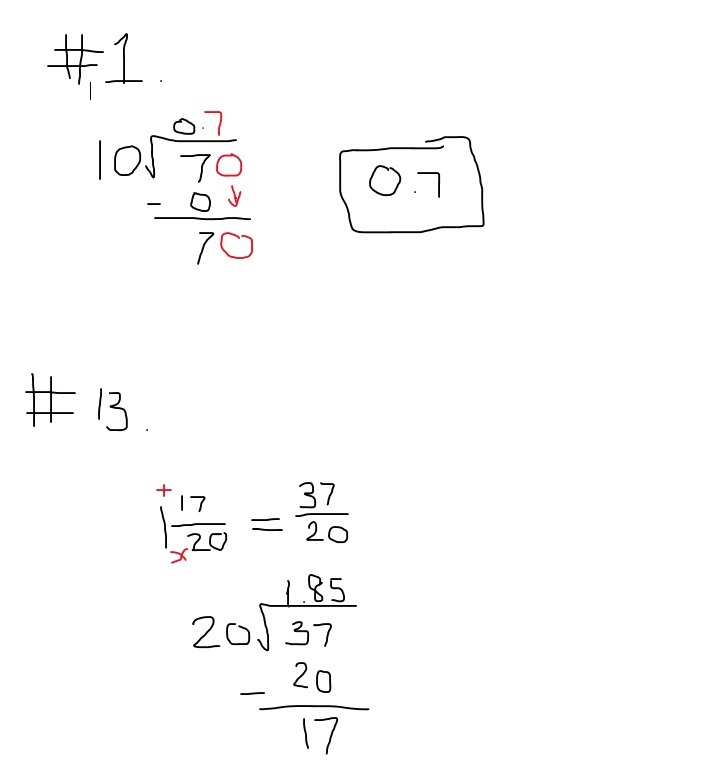 #1.
0.7
10√70
- 0
70
0.7
#13.
+
1 17/20 = 37/20
x
1.85
20√37
- 20
17